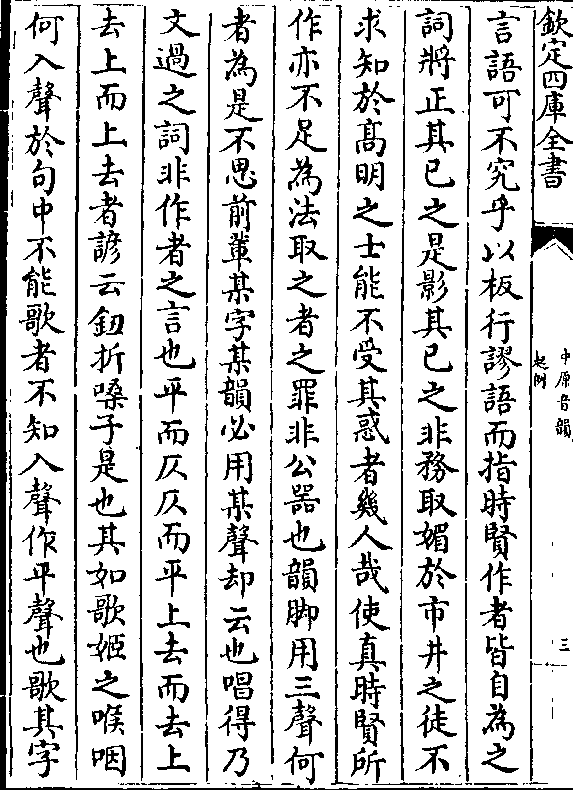 欽定四庫全書
中原音韻
起例
三
言語可不究乎以板行謬語而指時賢作者皆自為之
詞將正其已之是影其已之非務取媚於市井之徒不
求知於髙明之士能不受其惑者幾人哉使真時賢所
作亦不足為法取之者之罪非公器也韻脚用三聲何
者為是不思前輩某字某韻必用某聲却云也唱得乃
文過之詞非作者之言也平而仄仄而平上去而去上
去上而上去者諺云鈕折嗓子是也其如歌姬之喉咽
何入聲於句中不能歌者不知入聲作平聲也歌其字